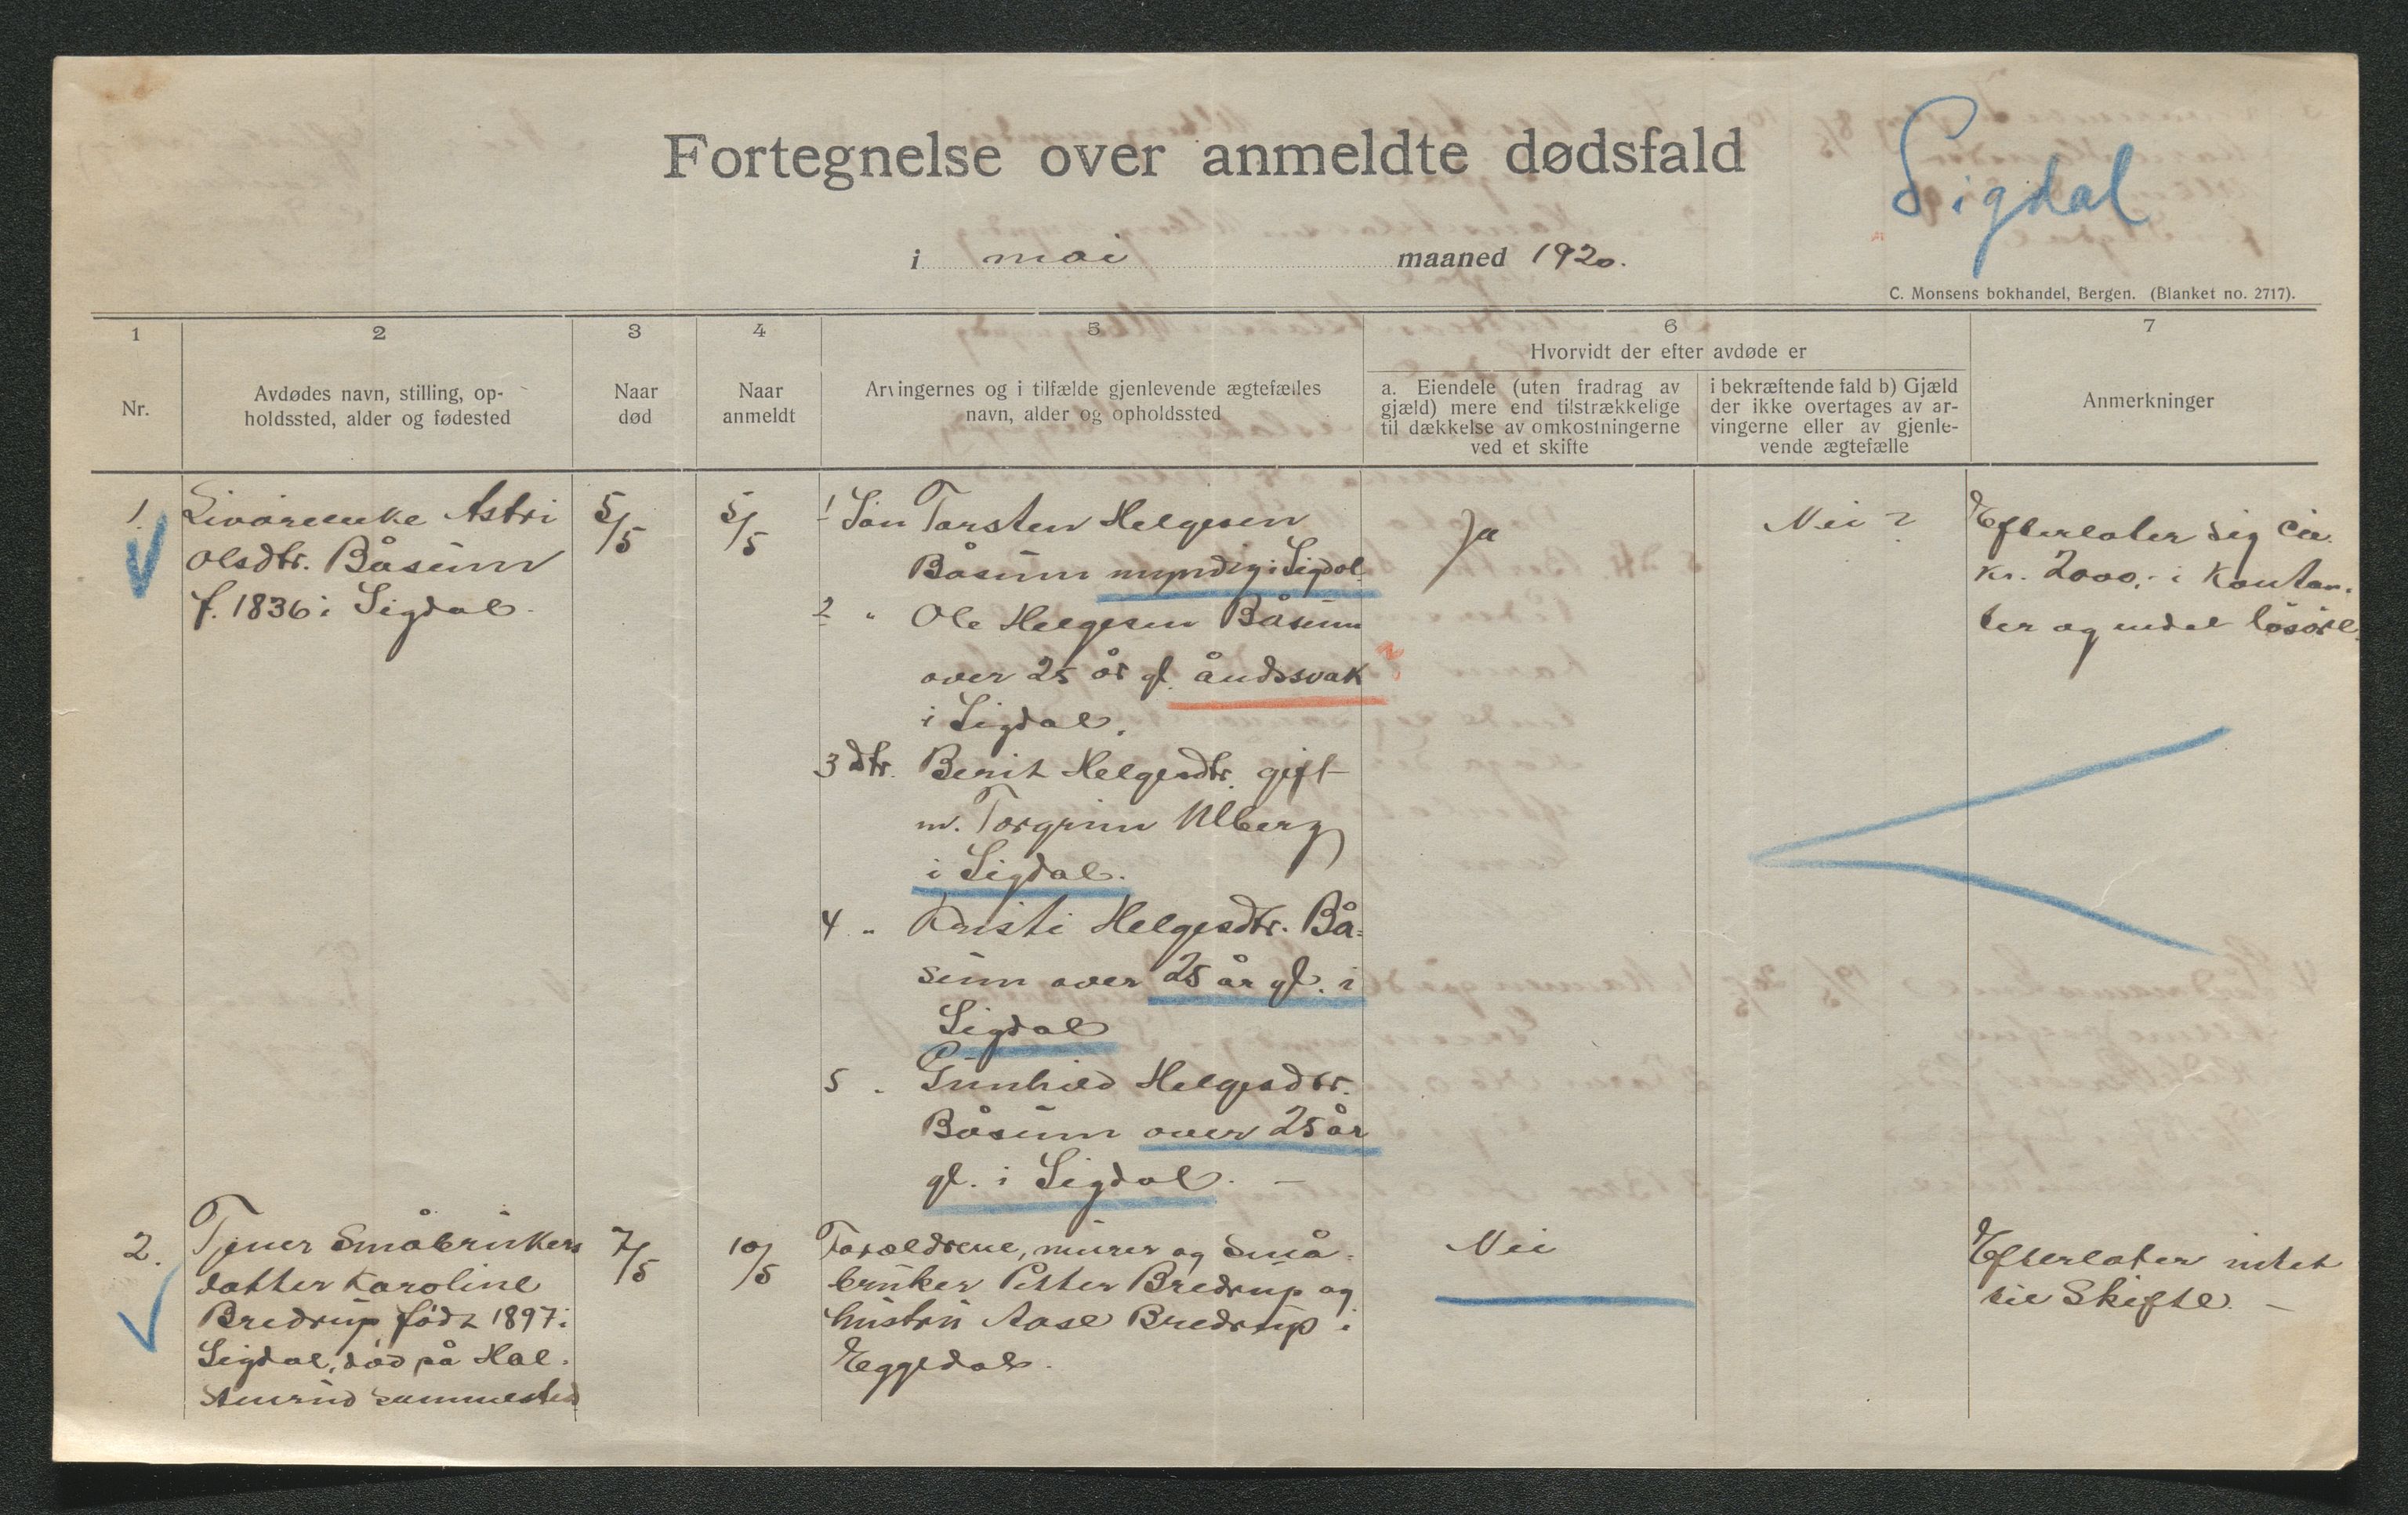 Fortegnelse over anmeldte dødsfald
Sigdal
i mai maaned 1920.
C. Monsens bokhandel, Bergen. (Blanket no. 2717).
1
Nr.
2
Avdødes navn, stilling, op-
holdssted, alder og fødested
3
Naar
død
4
Naar
anmeldt
5
Arvingernes og i tilfælde gjenlevende ægtefælles
navn, alder og opholdssted
6
Hvorvidt der efter avdøde er
a. Eiendele (uten fradrag av
gjæld) mere end tilstrækkelige
til dækkelse av omkostningerne
ved et skifte
i bekræftende fald b) Gjæld
der ikke overtages av ar-
vingerne eller av gjenle-
vende ægtefælle
7
Anmerkninger
1.
Livørenke Astri
Olsdtr. Båsum
f. 1836 i Sigdal.
5/5
5/5
1 Søn Torsten Helgesen
Båsum myndig i Sigdal.
2 " Ole Helgesen Båsum
over 25 år gl. åndssvak
i Sigdal.
3 dtr. Berit Helgesdtr. gift
m. Torgrim Ulberg
i Sigdal.
4 " Kristi Helgesdtr. Bå=
sum over 25 år gl. i
Sigdal
5 " Gunhild Helgesdtr.
Båsum over 25 år
gl. i Sigdal. —
Ja
Nei ?
Efterlater sig ca.
kr. 2000,- i Kontan-
ter og endel løsøre.
2.
Tjener Småbrukers
datter Karoline
Bredrup, født 1897 i
Sigdal, død på Hal-
stenrud sammested
7/5
10/5
Forældrene, murer og Små-
bruker Petter Bredrup og
hustru Aase Bredrup i
Eggedal.
Nei
Efterlater intet
til Skifte. —